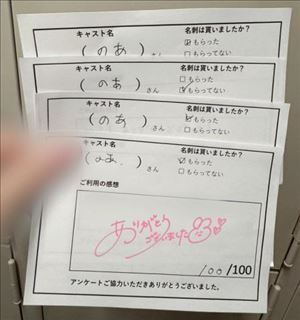 キャスト名 名刺は貰いましたか？
( のあ ) さん ☑もらった
□もらってない
キャスト名 名刺は貰いましたか？
( のあ ) さん □もらった
☑もらってない
キャスト名 名刺は貰いましたか？
( のあ ) さん ☑もらった
□もらってない
キャスト名 名刺は貰いましたか？
( のあ ) さん ☑もらった
□もらってない
ご利用の感想
ありがとう
ございました
100/100
アンケートご協力いただきありがとうございました。